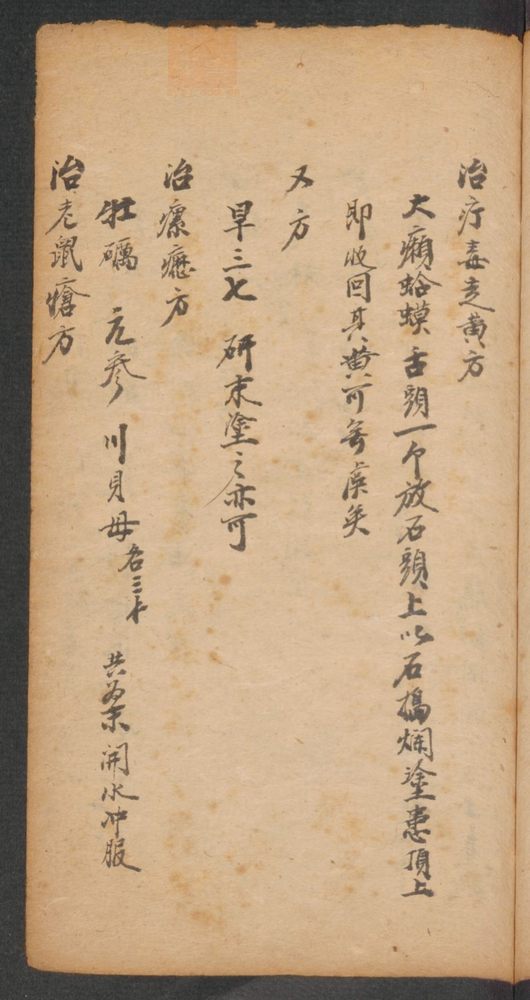 治疔毒走黄方
大癩蛤蟆舌頭一个放石頭上以石搗爛塗患頂上
即收回其黄可無虞矣
又方
旱三七 研末塗之亦可
治瘰癧方
牡礪 元參 川貝母各三 共為末開水冲服
治老鼠瘡方